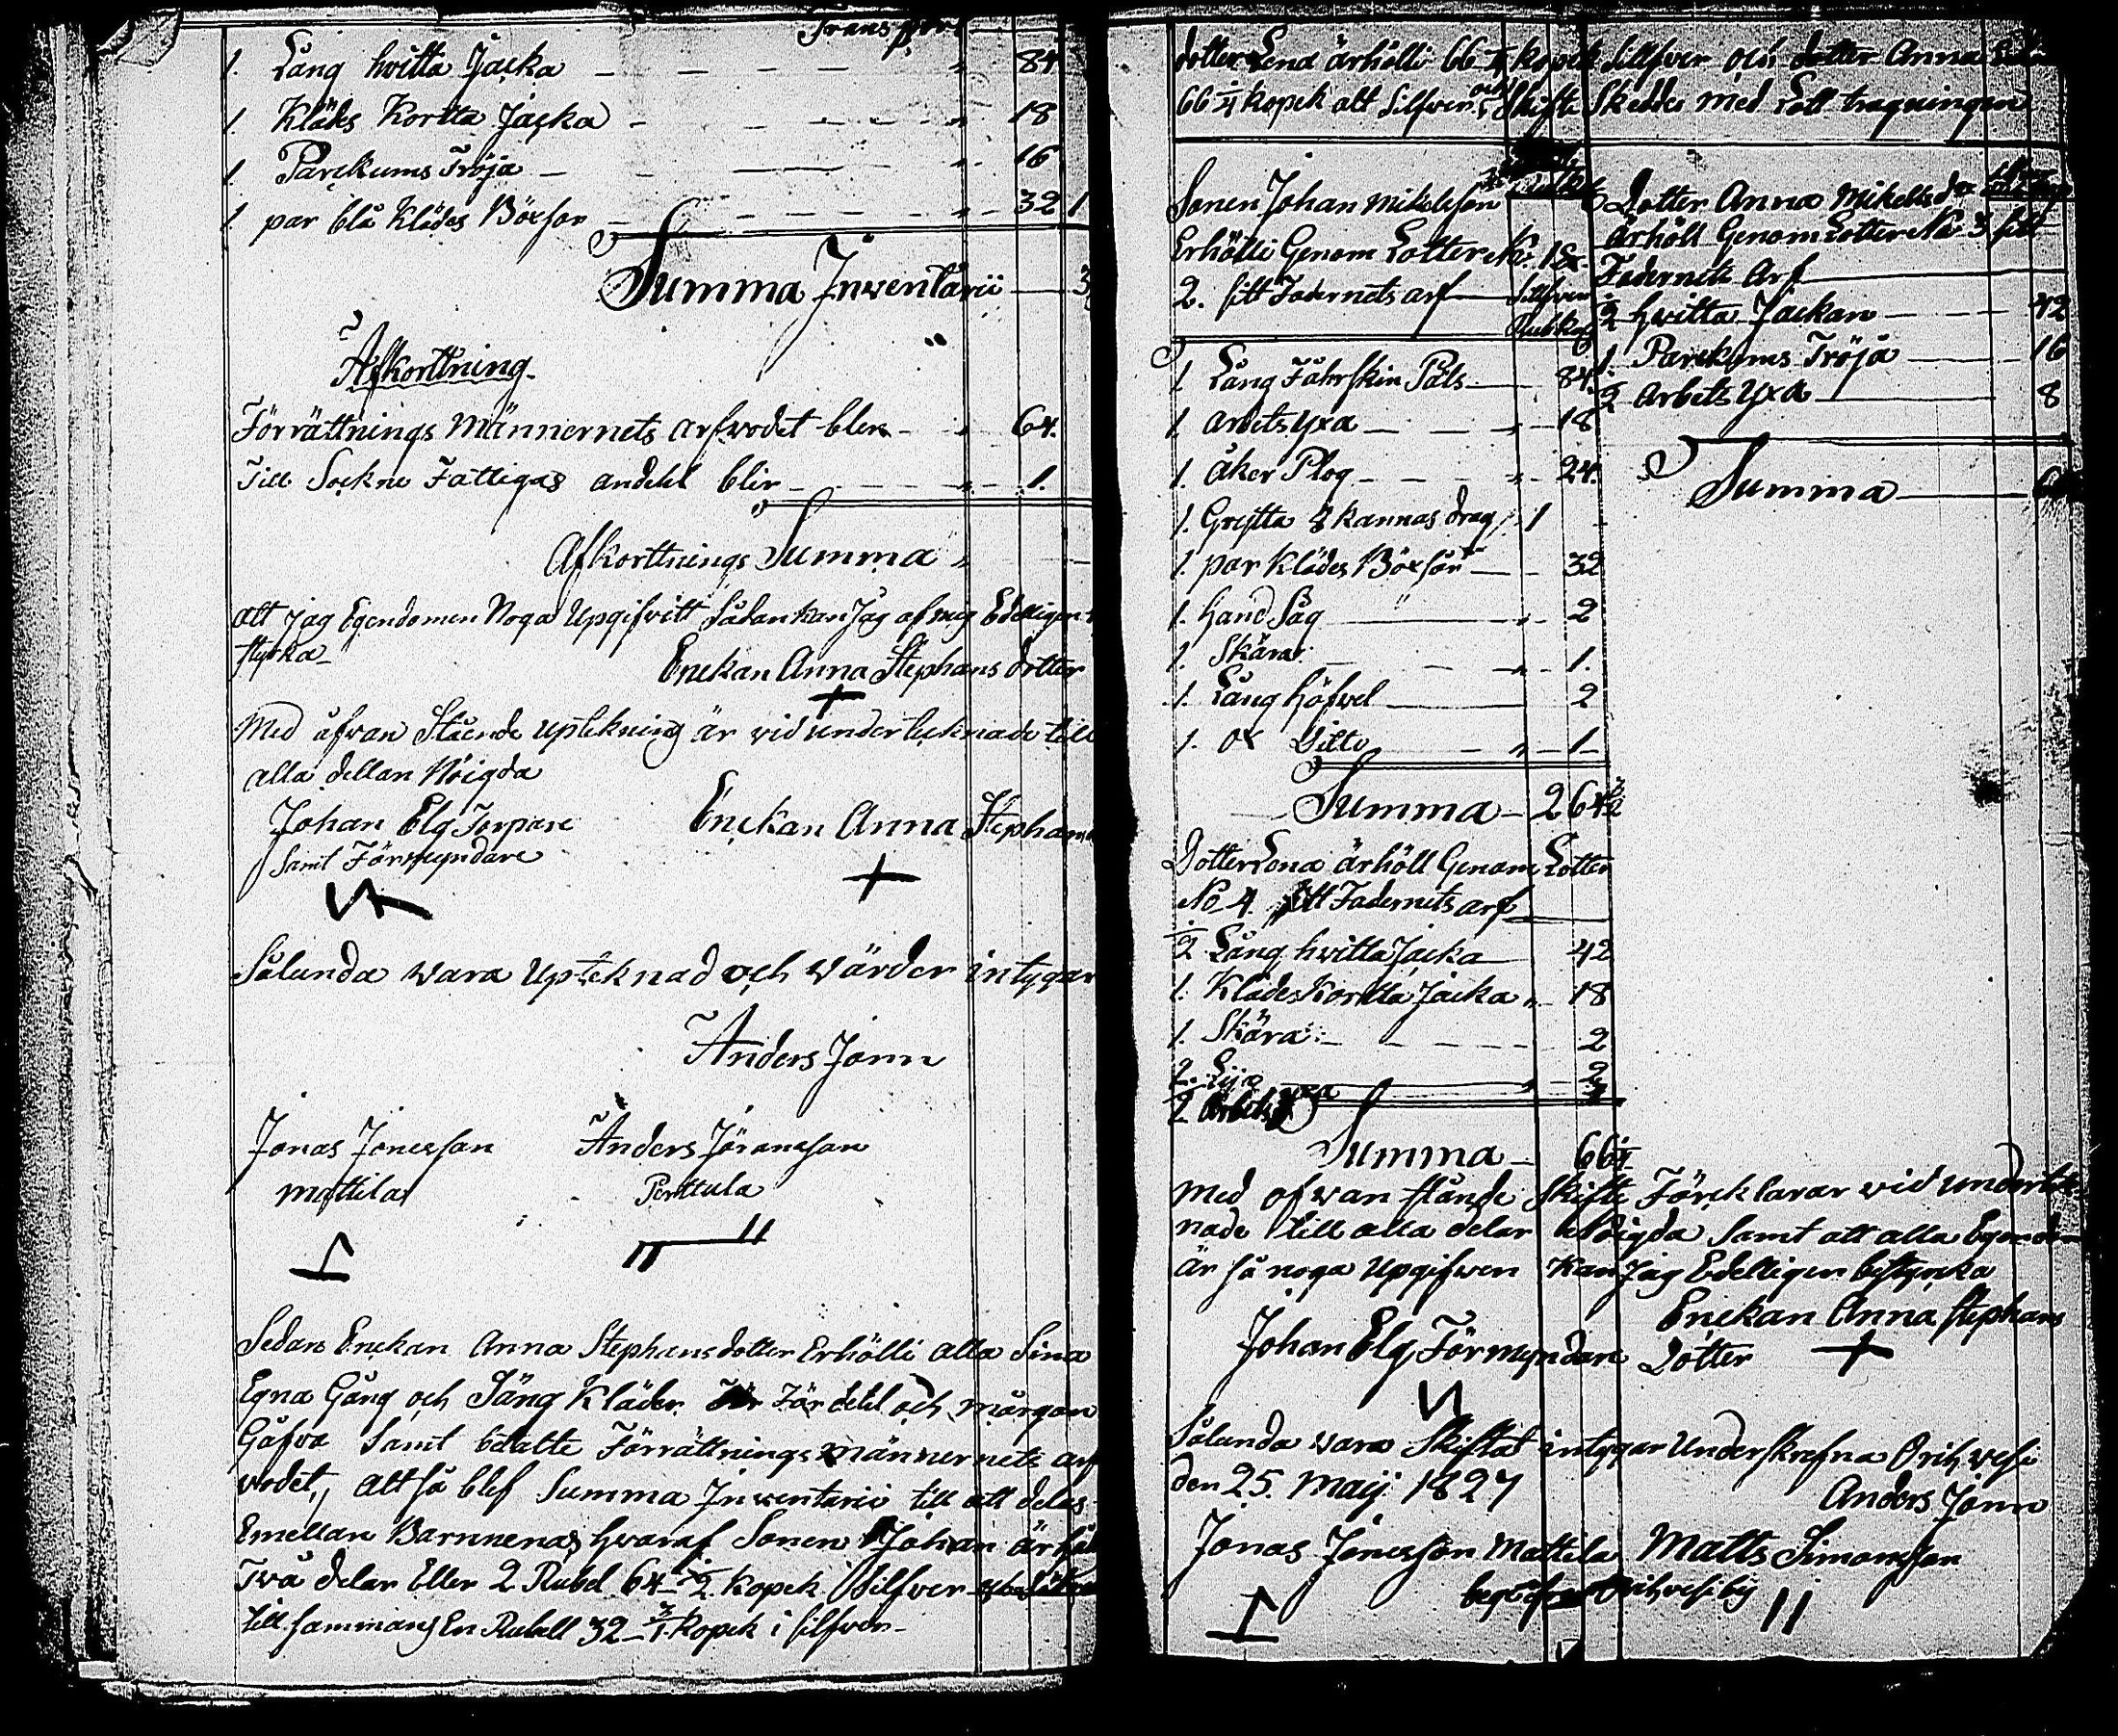 Transport
1. Lång hvitta Jacka 84
1. Kläds Kortta Jacka 18
1. Parckums Tröja 16
1. par blå Klädes Böxsor 32 1
Summa Inventarii 3
Afkorttning.
Förrättnings Männernets arfvodet bler 64.
Till Sockne Fattigas andehl blir 1.
Afkorttnings Summa
att jag Egendomen Noga Upgifvitt sådan kan Jag af mig Edelligen
styrka
Enckan Anna Stephans dotter
+
Med åfvan Stående uptekning är vid undertecknade till
alla dellan Nöigda
Johan Elg Torpare Enckan Anna Stephans
Samt Förmyndare
+
Sålunda vara Upteknad och Värder intygar
Anders Jonn
Jonas Jönesson Anders Jöransson
Mattila Perttula
Sedan Enckan Anna Stephansdotter Erhölli alla Sina
Egna Gång och Säng Kläder För Fördehl och mårgon
Gåfva Samt betalte Förrättnings Männernets arf
vodet, altså blef Summa Inventarii till att delas
Emellan Barnnenas hvaraf Sonen Johan ärhöl
Två delar Eller 2 Rubel 64 1/2 kopek Silfver
till sammans En Rubell 32 3/4 kopek i silfver
dotter Lena ärhölli 66 1/4 kopek Silfver och dotter Anna
66 1/4 kopek alt Silfver och Skifte Skedde med Lott dragningen
Sonen Johan Mikelsson
Erhölli Genom Lotter No. 1 &
2. sitt Fadernets arf Silfver
Rub kop
1 Lång Fåhrskin Päls 84.
1. arbets yxa 18
1. åker Plog 24.
1. Grytta 8 kannas drag 1
1. par Klädes Böxsor 32
1. hand Såg 2
1. Skära 1.
1. Lång höfvel 2
1. ox Ditto 1
Summa 2 64 1/2
Dotter Lena ärhöll Genom Lotter
No 4. sitt Fadernets arf
1/2 Lång hvitta Jacka 42
1. Klädes Kortta Jacka 18
1. Skära 2
2. Lija 2
1/2 Arbets yxa
Summa 66 1/4
Dotter Anna Mikellsd
ärhöll Genom Lotter No 3 sitt
Fadernets Arf
1/2 hvitta Jackan 42
1. Parckums Tröja 16
1/2 Arbets Yxa 8
Summa
Med ofvan stånde Skifte Föreklarar vid undertek
nade till alla delar Nöigda Samt att alla Egendom
är så noga Upgifven Kan Jag Edelligen bestyrcka
Enckan Anna Stephans
Johan Elg Förmyndare Dotter +
Sålunda vara Skiftat intygar Underskrefna Orihvesi
den 25. Maij 1827
Anders Jonn
Jonas Jönesson Mattila Matts Simonsson
Orihvesi by